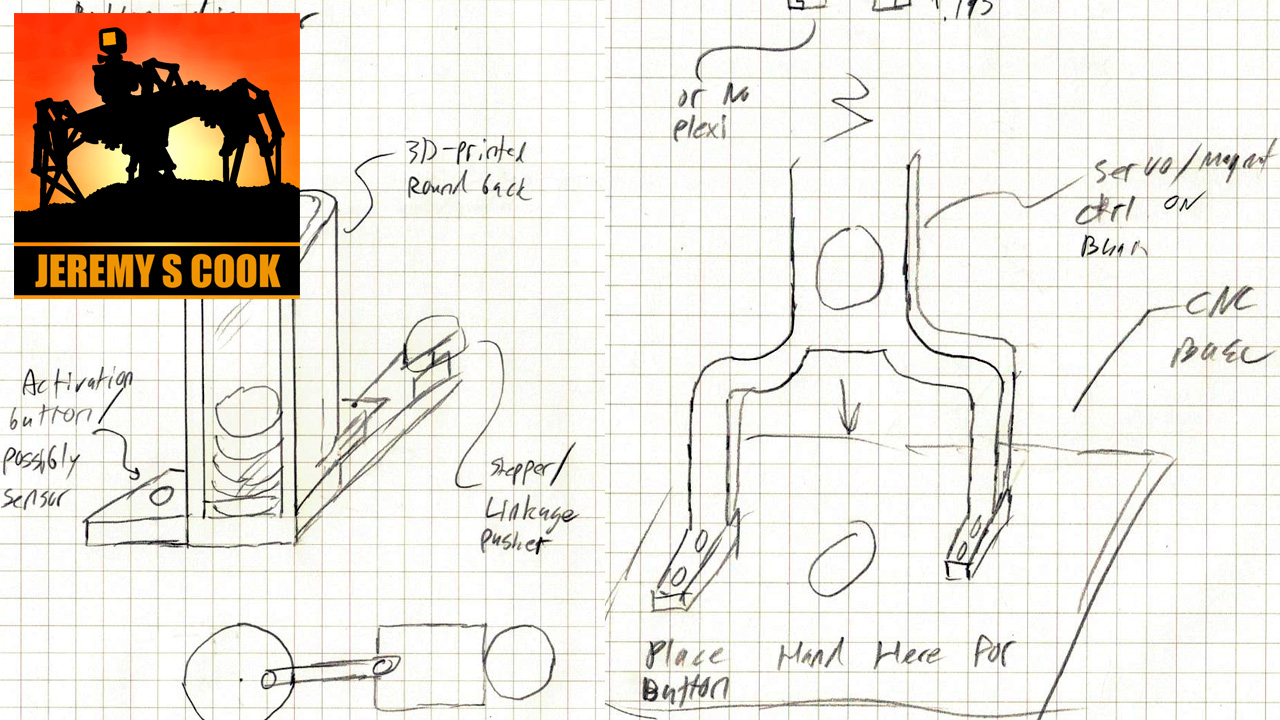 JEREMY S COOK
3D-printed
Round back
Activation
button/
possibly
sensor
Stepper/
Linkage
pusher
.195
or No
plexi
Servo/Magnet
ctrl ON
CNC
Base
Place Hand Here For
Button